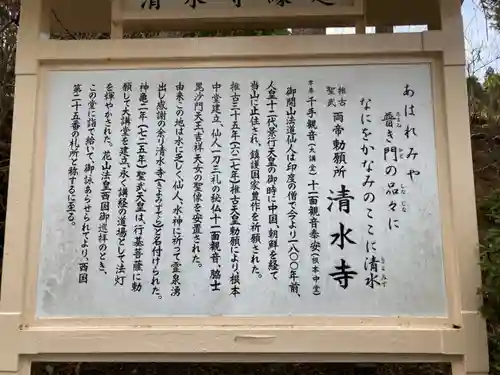 清水寺縁起
あはれみや
普き門の品々に
なにをかなみのここに清水
推古
聖武
両帝勅願所 清水寺
本尊 千手観音(大講堂) 十一面観音奉安(根本中堂)
御開山法道仙人は印度の僧で今より一八〇〇年前、
人皇十二代景行天皇の御時に中国、朝鮮を経て
当山に止住され、鎮護国家豊作を祈願された。
推古三十五年(六二七年)推古天皇勅願により根本
中堂建立、仙人一刀三礼の秘仏十一面観音、脇士
毘沙門天王、吉祥天女の聖像を安置された。
由来この地は水に乏しく仙人、水神に祈って霊泉湧
出し感謝の余り清水寺(きよみずでら)と名付けられた。
神亀二年(七二五年)聖武天皇は、行基菩薩に勅
願して大講堂を建立、永く講経の道場として法灯
を輝やかされた。花山法皇西国御巡拝のとき、
この堂に詣で給いて、御詠あらせられてより、西国
第二十五番の札所と称するに至る。